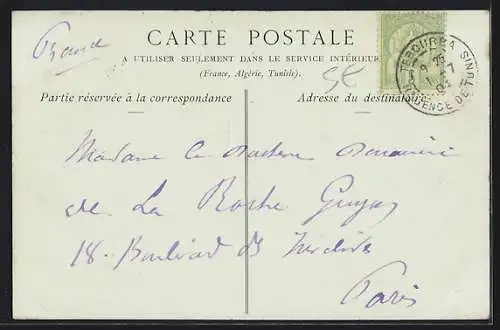 France
CARTE POSTALE
A UTILISER SEULEMENT DANS LE SERVICE INTÉRIEUR
(France, Algérie, Tunisie).
Partie réservée à la correspondance
Adresse du destinataire
TEBOURBA
RÉGENCE DE TUNIS
Madame
de La Roche Guyon
18. Boulevard des Invalides
Paris